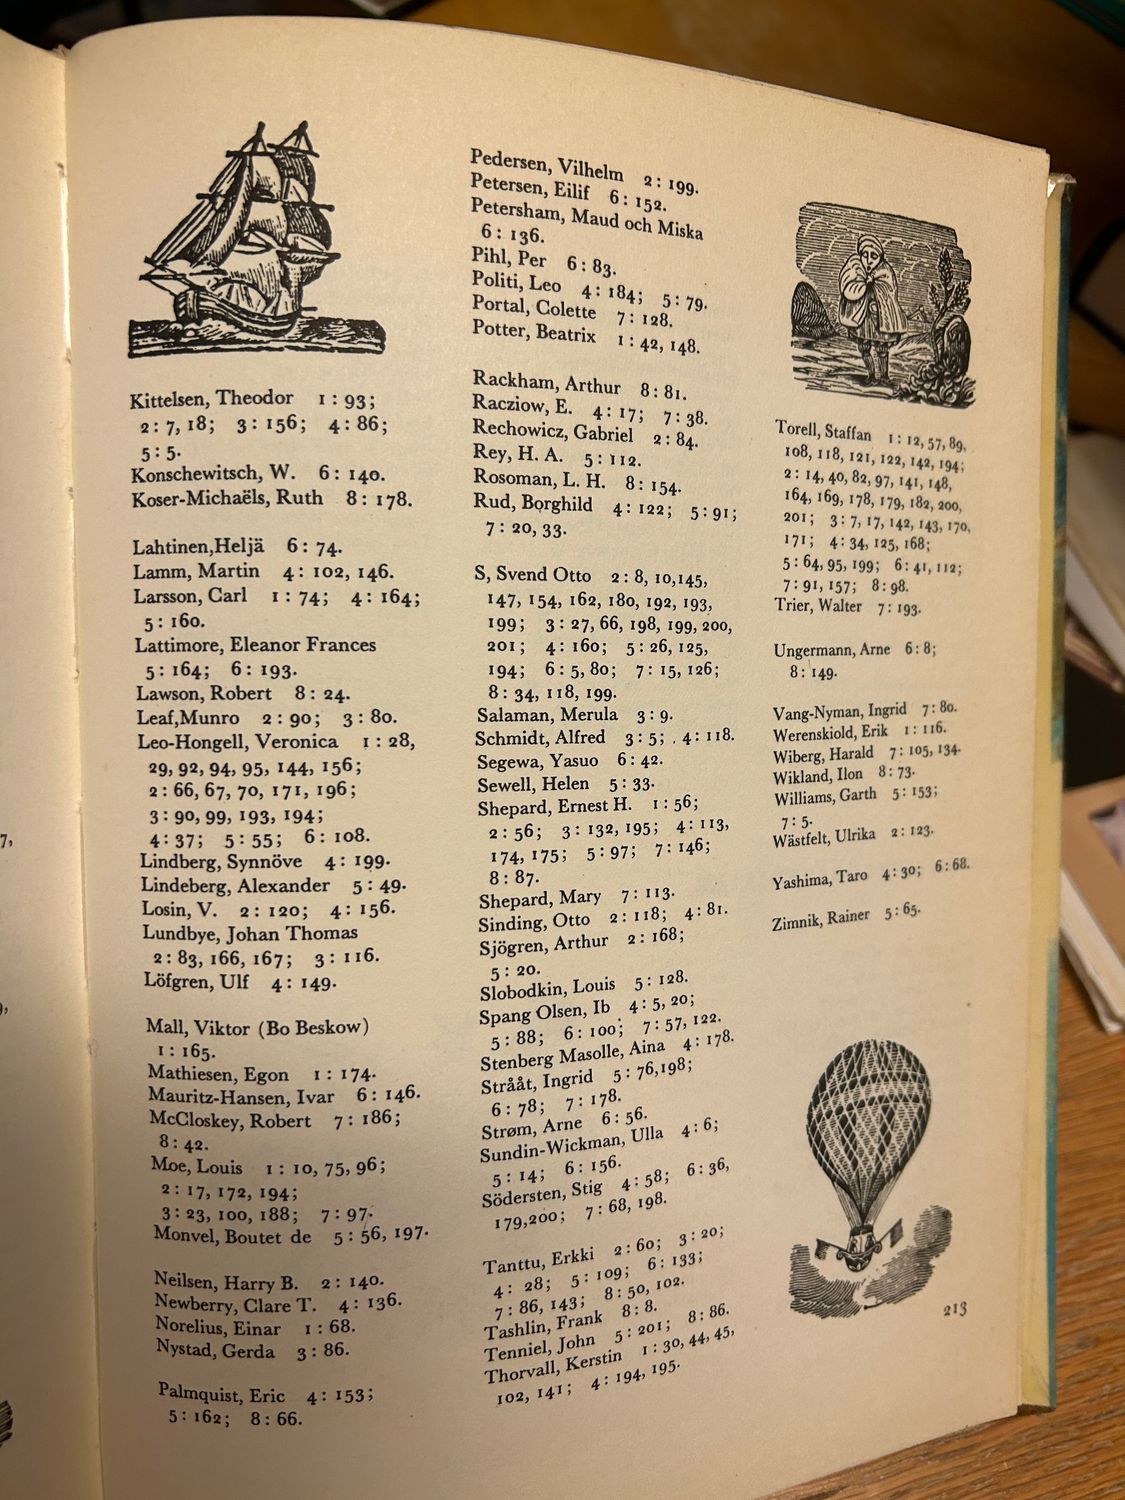 Kittelsen, Theodor 1: 93;
2: 7, 18; 3: 156; 4: 86;
5: 5.
Konschewitsch, W. 6: 140.
Koser-Michaëls, Ruth 8: 178.
Lahtinen,Heljä 6: 74.
Lamm, Martin 4: 102, 146.
Larsson, Carl 1: 74; 4: 164;
5: 160.
Lattimore, Eleanor Frances
5: 164; 6: 193.
Lawson, Robert 8: 24.
Leaf,Munro 2: 90; 3: 80.
Leo-Hongell, Veronica 1: 28,
29, 92, 94, 95, 144, 156;
2: 66, 67, 70, 171, 196;
3: 90, 99, 193, 194;
4: 37; 5: 55; 6: 108.
Lindberg, Synnöve 4: 199.
Lindeberg, Alexander 5: 49.
Losin, V. 2: 120; 4: 156.
Lundbye, Johan Thomas
2: 83, 166, 167; 3: 116.
Löfgren, Ulf 4: 149.
Mall, Viktor (Bo Beskow)
1: 165.
Mathiesen, Egon 1: 174.
Mauritz-Hansen, Ivar 6: 146.
McCloskey, Robert 7: 186;
8: 42.
Moe, Louis 1: 10, 75, 96;
2: 17, 172, 194;
3: 23, 100, 188; 7: 97.
Monvel, Boutet de 5: 56, 197.
Neilsen, Harry B. 2: 140.
Newberry, Clare T. 4: 136.
Norelius, Einar 1: 68.
Nystad, Gerda 3: 86.
Palmquist, Eric 4: 153;
5: 162; 8: 66.
Pedersen, Vilhelm 2: 199.
Petersen, Eilif 6: 152.
Petersham, Maud och Miska
6: 136.
Pihl, Per 6: 83.
Politi, Leo 4: 184; 5: 79.
Portal, Colette 7: 128.
Potter, Beatrix 1: 42, 148.
Rackham, Arthur 8: 81.
Racziow, E. 4: 17; 7: 38.
Rechowicz, Gabriel 2: 84.
Rey, H. A. 5: 112.
Rosoman, L. H. 8: 154.
Rud, Borghild 4: 122; 5: 91;
7: 20, 33.
S, Svend Otto 2: 8, 10,145,
147, 154, 162, 180, 192, 193,
199; 3: 27, 66, 198, 199, 200,
201; 4: 160; 5: 26, 125,
194; 6: 5, 80; 7: 15, 126;
8: 34, 118, 199.
Salaman, Merula 3: 9.
Schmidt, Alfred 3: 5; 4: 118.
Segewa, Yasuo 6: 42.
Sewell, Helen 5: 33.
Shepard, Ernest H. 1: 56;
2: 56; 3: 132, 195; 4: 113,
174, 175; 5: 97; 7: 146;
8: 87.
Shepard, Mary 7: 113.
Sinding, Otto 2: 118; 4: 81.
Sjögren, Arthur 2: 168;
5: 20.
Slobodkin, Louis 5: 128.
Spang Olsen, Ib 4: 5, 20;
5: 88; 6: 100; 7: 57, 122.
Stenberg Masolle, Aina 4: 178.
Strååt, Ingrid 5: 76,198;
6: 78; 7: 178.
Strøm, Arne 6: 56.
Sundin-Wickman, Ulla 4: 6;
5: 14; 6: 156.
Södersten, Stig 4: 58; 6: 36,
179,200; 7: 68, 198.
Tanttu, Erkki 2: 60; 3: 20;
4: 28; 5: 109; 6: 133;
7: 86, 143; 8: 50, 102.
Tashlin, Frank 8: 8.
Tenniel, John 5: 201; 8: 86.
Thorvall, Kerstin 1: 30, 44, 45,
102, 141; 4: 194, 195.
Torell, Staffan 1: 12, 57, 89,
108, 118, 121, 122, 142, 194;
2: 14, 40, 82, 97, 141, 148,
164, 169, 178, 179, 182, 200,
201; 3: 7, 17, 142, 143, 170,
171; 4: 34, 125, 168;
5: 64, 95, 199; 6: 41, 112;
7: 91, 157; 8: 98.
Trier, Walter 7: 193.
Ungermann, Arne 6: 8;
8: 149.
Vang-Nyman, Ingrid 7: 80.
Werenskiold, Erik 1: 116.
Wiberg, Harald 7: 105, 134.
Wikland, Ilon 8: 73.
Williams, Garth 5: 153;
7: 5.
Wästfelt, Ulrika 2: 123.
Yashima, Taro 4: 30; 6: 68.
Zimnik, Rainer 5: 65.
213